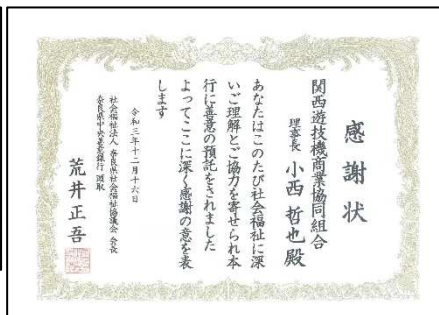 感謝状
関西遊技機商業協同組合
理事長 小西 哲也 殿
あなたはこのたび社会福祉に深
いご理解とご協力を寄せられ本
行に善意の預託をされました
よってここに深く感謝の意を表
します
令和三年十二月十六日
社会福祉法人 奈良県社会福祉協議会 会長
奈良県中央善意銀行 頭取
荒井正吾